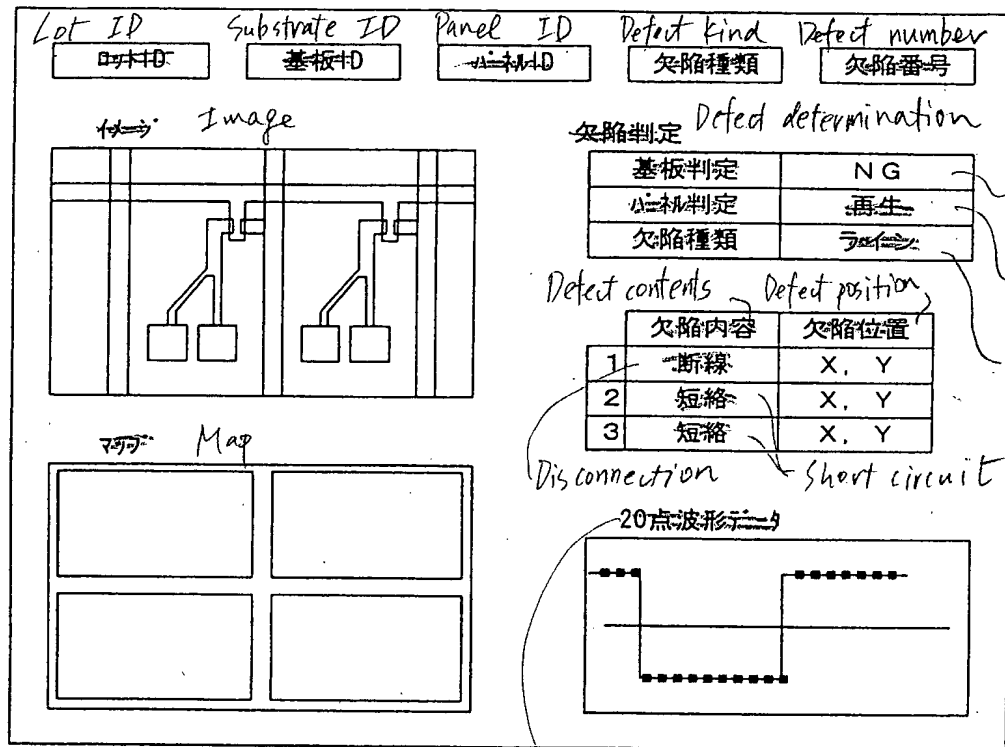 Lot ID Substrate ID Panel ID Defect kind Defect number
ロットID 基板ID パネルID 欠陥種類 欠陥番号
イメージ Image
欠陥判定 Defect determination
基板判定 NG
パネル判定 再生
欠陥種類 ライン
Defect contents Defect position
欠陥内容 欠陥位置
1 断線 X, Y
2 短絡 X, Y
3 短絡 X, Y
Disconnection Short circuit
マップ Map
20点波形データ